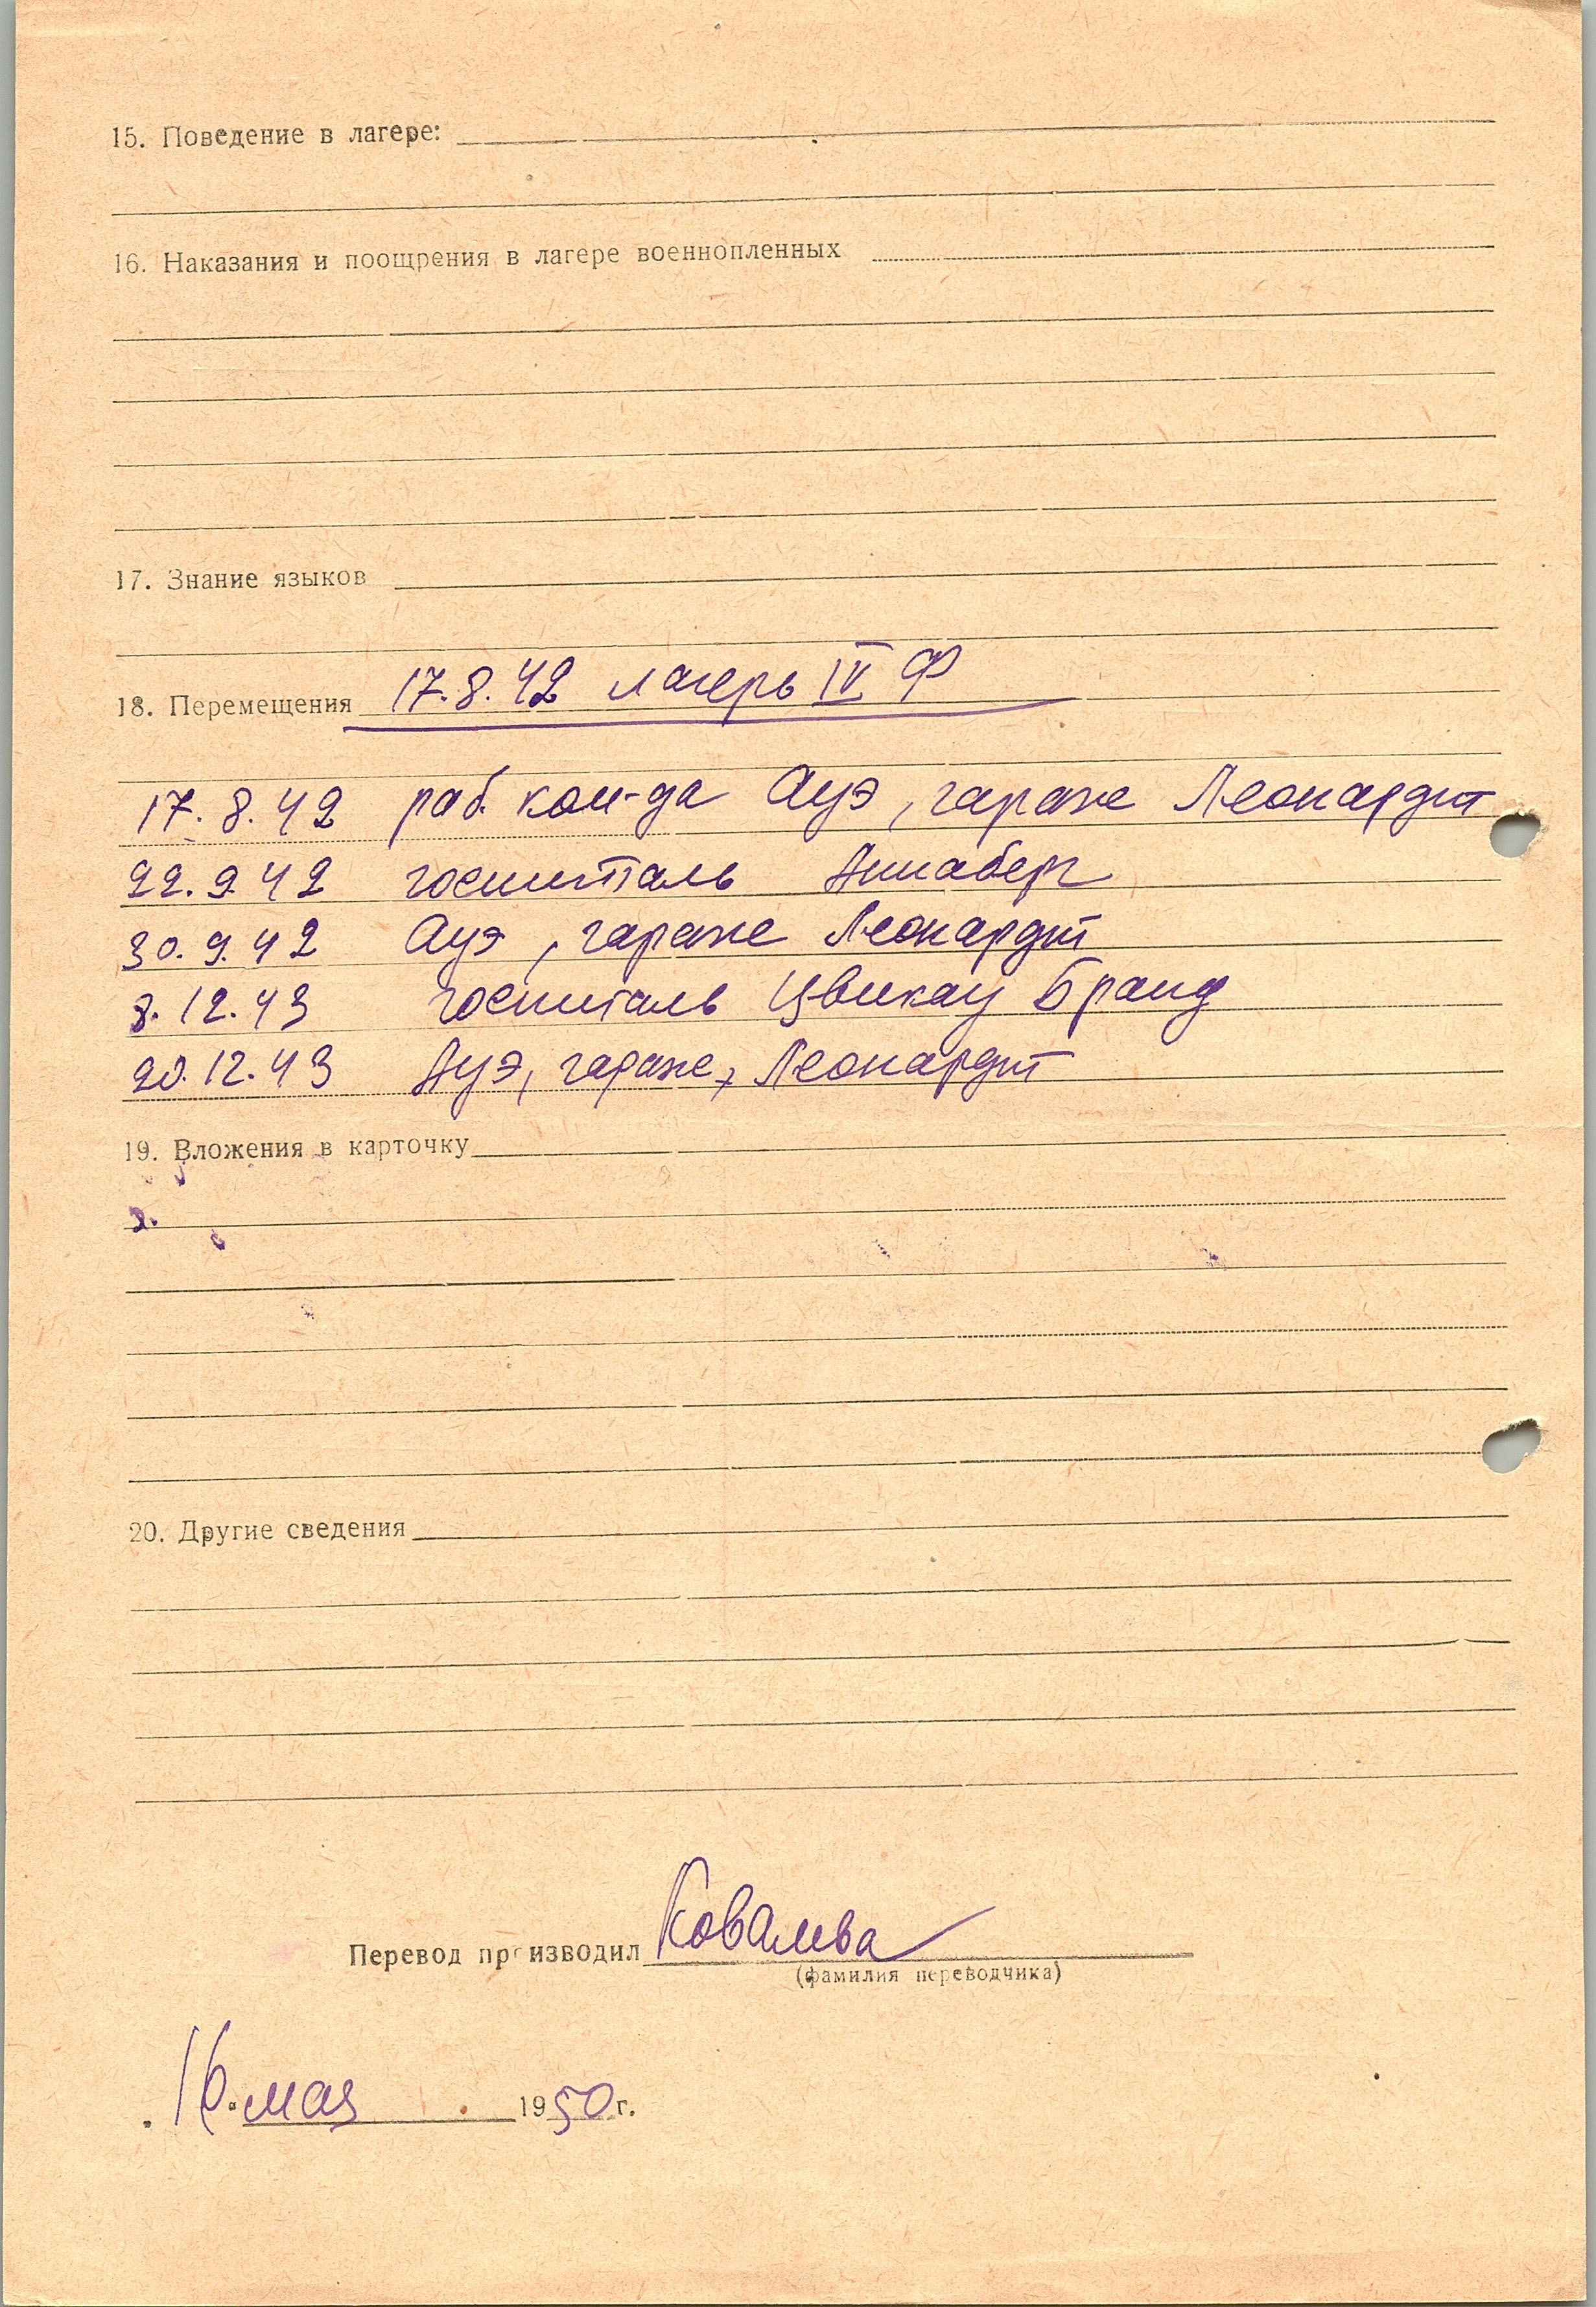 15. Поведение в лагере:
16. Наказания и поощрения в лагере военнопленных
17. Знание языков
18. Перемещения 17.8.42 лагерь IV Ф
17.8.42 раб. ком-да Ауэ, гараже Леонардт
22.9.42 госпиталь Аннаберг
30.9.42 Ауэ, гараже Леонардт
8.12.43 госпиталь Цвикау Бранд
20.12.43 Ауэ, гараже, Леонардт
19. Вложения в карточку
20. Другие сведения
Перевод производил Ковалева
(фамилия переводчика)
16. мая 1950 г.